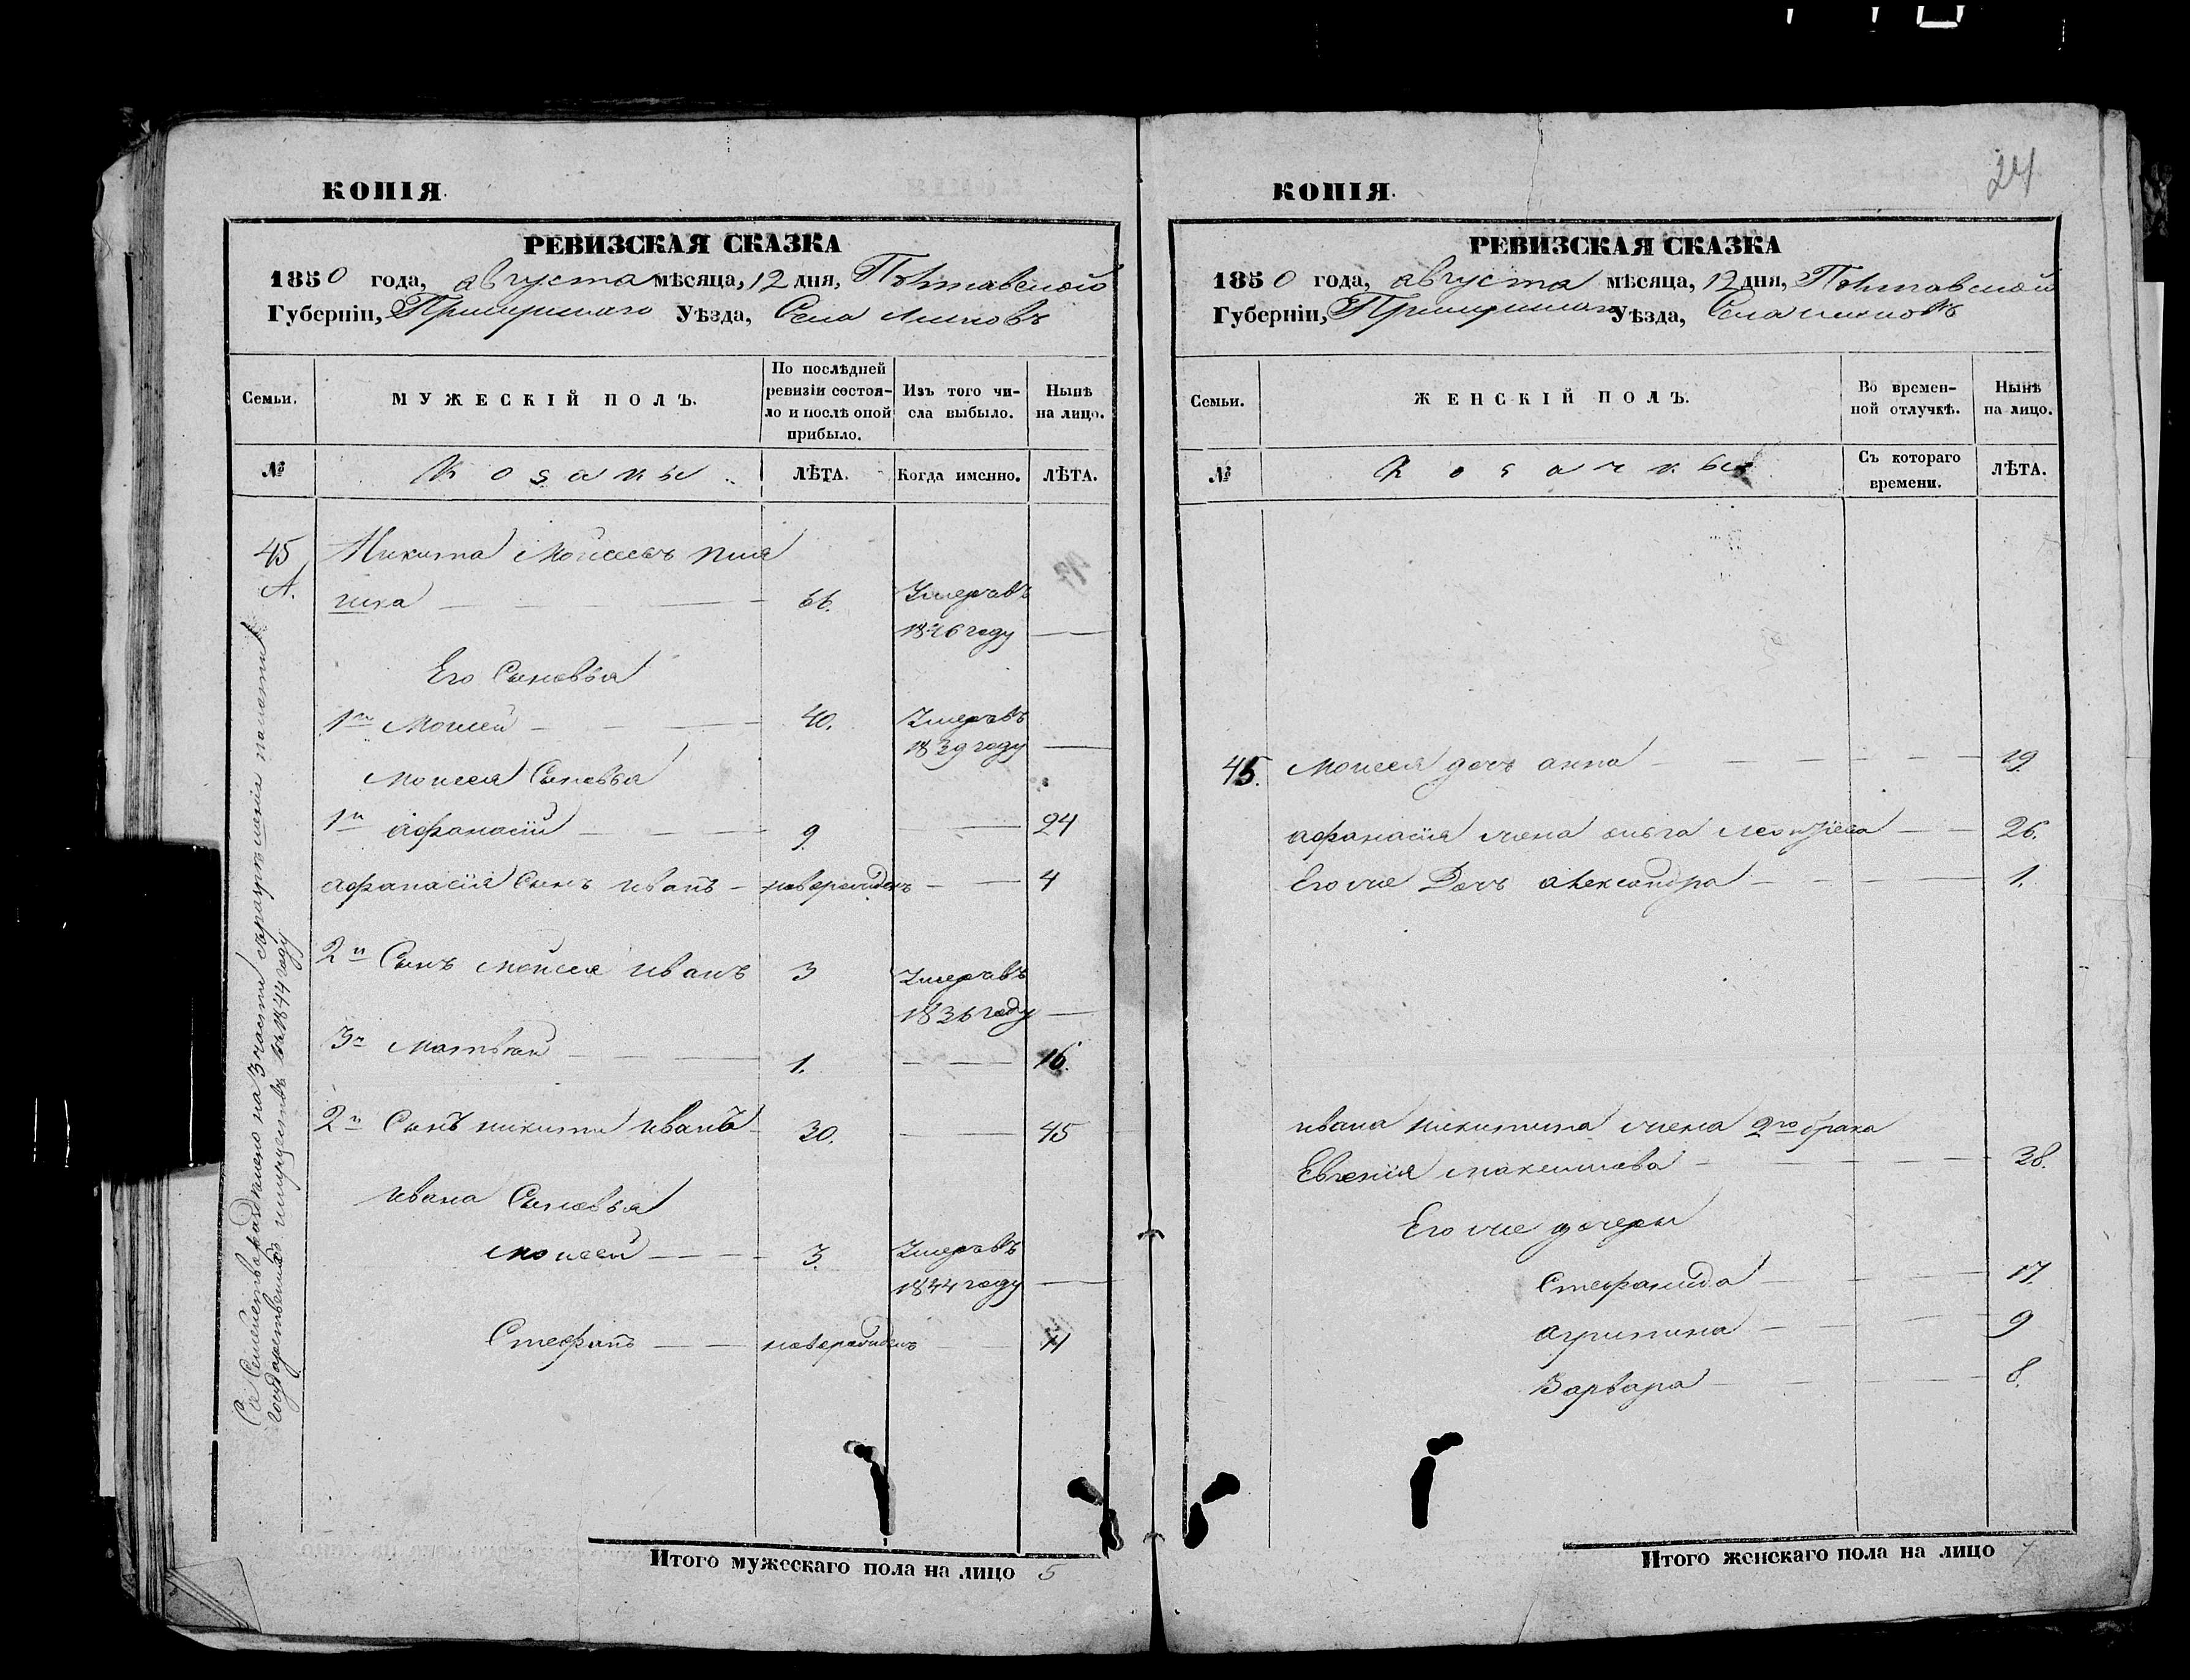 24
КОПІЯ.
РЕВИЗСКАЯ СКАЗКА
1850 года, августа мѣсяца, 12 дня, Полтавской
Губерніи, Прилуцкаго Уѣзда, Села
Семьи.
МУЖЕСКІЙ ПОЛЪ.
По послѣдней
ревизіи состоя-
ло и послѣ оной
прибыло.
Изъ того чи-
сла выбыло.
Нынѣ
на лицо.
№
Козаки
ЛѢТА.
Когда именно.
ЛѢТА.
45 Никита Моисеевъ
А. 66. Умеръ въ
1846 году
Его Сыновья
1й Моисей 40. Умеръ въ
1839 году
Моисея Сыновья
1й Афанасій 9. 24
Афанасія Сынъ Иванъ новорожденъ 4
2й Сынъ Моисея Иванъ 3 Умеръ въ
1836 году
3й Матвѣй 1. 16.
2й Сынъ Никиты Иванъ 30. 45
Ивана Сыновья
Моисей 3. Умеръ въ
1844 году
Стефанъ новорожденъ 11
Сіе Семейство раздѣлено на 3 части съ разрѣшенія палаты
государственныхъ имуществъ въ 1844 году
Итого мужескаго пола на лицо 5
КОПІЯ.
РЕВИЗСКАЯ СКАЗКА
1850 года, августа мѣсяца, 12 дня, Полтавской
Губерніи, Прилуцкаго Уѣзда, Села
Семьи.
ЖЕНСКІЙ ПОЛЪ.
Во времен-
ной отлучкѣ.
Нынѣ
на лицо.
№
Козачки
Съ котораго
времени.
ЛѢТА.
45. Моисея дочь Анна 19.
Афанасія жена Ольга Леонтіева 26.
Его же Дочь Александра 1.
Ивана Никитина жена 2го брака
Евгенія Максимова 38.
Его же дочери
Стефанида 17.
Агрипина 9
Варвара 8.
Итого женскаго пола на лицо 7